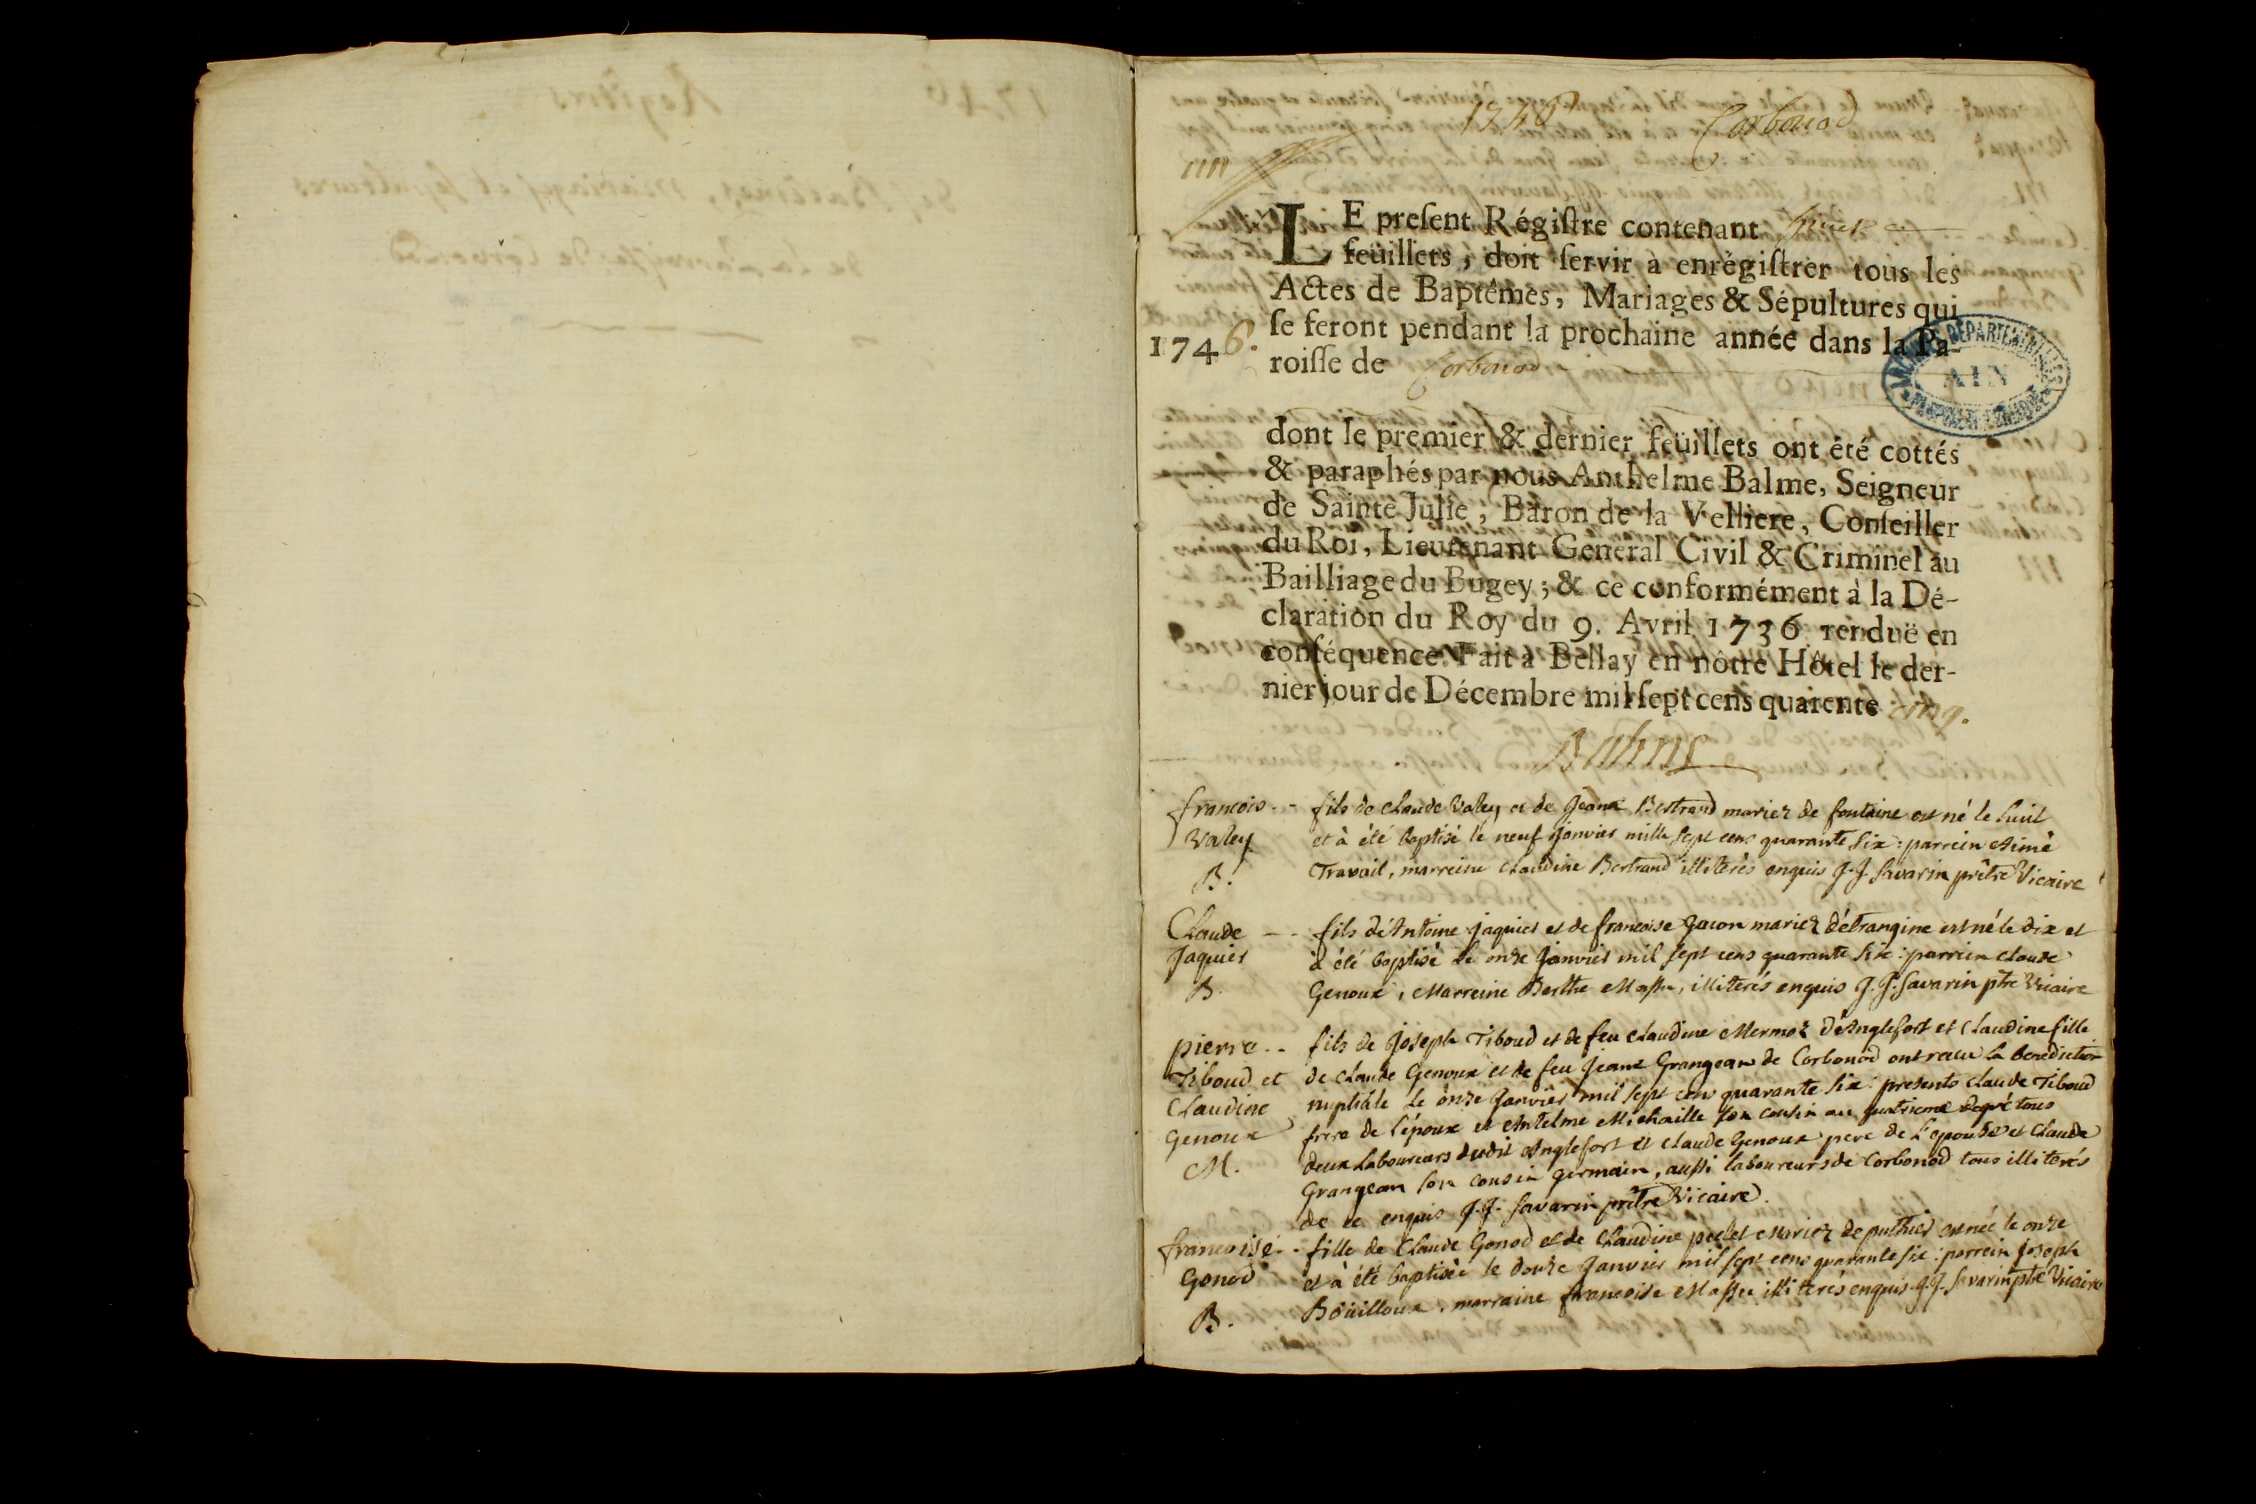 1746
Corbonod
LE preſent Régiſtre contenant
feüillets, doit ſervir à enrégiſtrer tous les
Actes de Baptêmes, Mariages & Sépultures qui
ſe feront pendant la prochaine année dans la Pa-
1746.
roiſſe de Corbonod
ARCHIVES DÉPARTEMENTALES
AIN
dont le premier & dernier feüillets ont été cottés
& paraphés par nous Anthelme Balme, Seigneur
de Sainte Julie, Baron de la Velliere, Conſeiller
du Roi, Lieutenant General Civil & Criminel au
Bailliage du Bugey; & ce conformément à la Dé-
claration du Roy du 9. Avril 1736 renduë en
conſéquence. Fait à Bellay en nôtre Hôtel le der-
nier jour de Décembre mil ſept cens quarente cinq.
Balme
francois
valey
B.
fils de claude valey et de Jeane Bertrand mariez de fontaine est né le huit
et à été baptisé le neuf Janvier mille sept cens quarante six : parrein Aimé
Travail, marreine claudine Bertrand illiterés enquis J.J. Savarin prêtre Vicaire
Claude
Jaquier
B.
fils d'Antoine Jaquier et de francoise Jacon mariez d'étrangine est né le dix et
à été baptisé le onze Janvier mil sept cens quarante six : parrein claude
Genoux, Marreine Berthe Masse, illiterés enquis J.J. Savarin ptre Vicaire
pierre
Tiboud et
Claudine
Genoux
M.
fils de Joseph Tiboud et de feu claudine Mermoz d'Anglefort et Claudine fille
de claude Genoux et de feu Jeane Grangean de Corbonod ont recu la benediction
nuptiale le onze Janvier mil sept cens quarante six : presents claude Tiboud
frere de l'époux et Antelme Michaille son cousin au quatrieme degré tous
deux laboureurs dudit Anglefort et claude Genoux pere de l'epouse et Claude
Grangean son cousin germain, aussi laboureurs de Corbonod tous illiterés
de ce enquis J.J. Savarin prêtre Vicaire.
francoise
Gonod
B.
fille de Claude Gonod et de Claudine peclet Mariez de puthier est née le onze
et à été baptisée le douze Janvier mil sept cens quarante six : parrein Joseph
Boüilloux, marraine francoise Masse illiterés enquis. J.J. Savarin ptre Vicaire